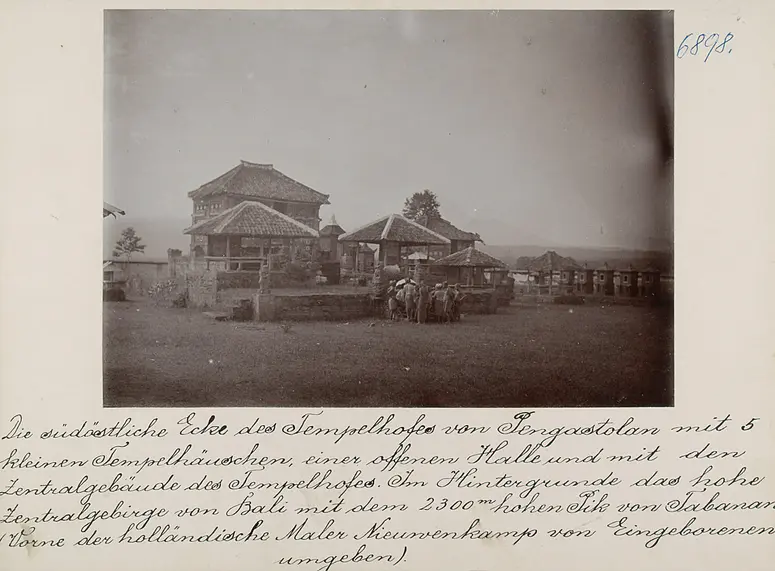 6898.
Die südöstliche Ecke des Tempelhofes von Pengastolan mit 5
kleinen Tempelhäuschen, einer offenen Halle und mit den
Zentralgebäude des Tempelhofes. Im Hintergrunde das hohe
Zentralgebirge von Bali mit dem 2300m hohen Pik von Tabanan
(Vorne der holländische Maler Nieuwenkamp von Eingeborenen
umgeben).